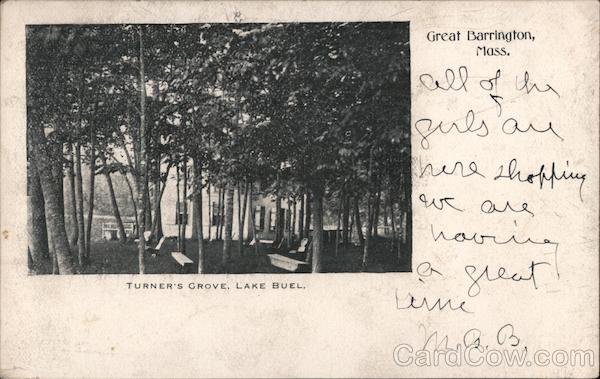 Great Barrington,
Mass.
all of the
girls are
here shopping
we are
having
a great
time
M. B. B.
TURNER'S GROVE, LAKE BUEL.
CardCow.com